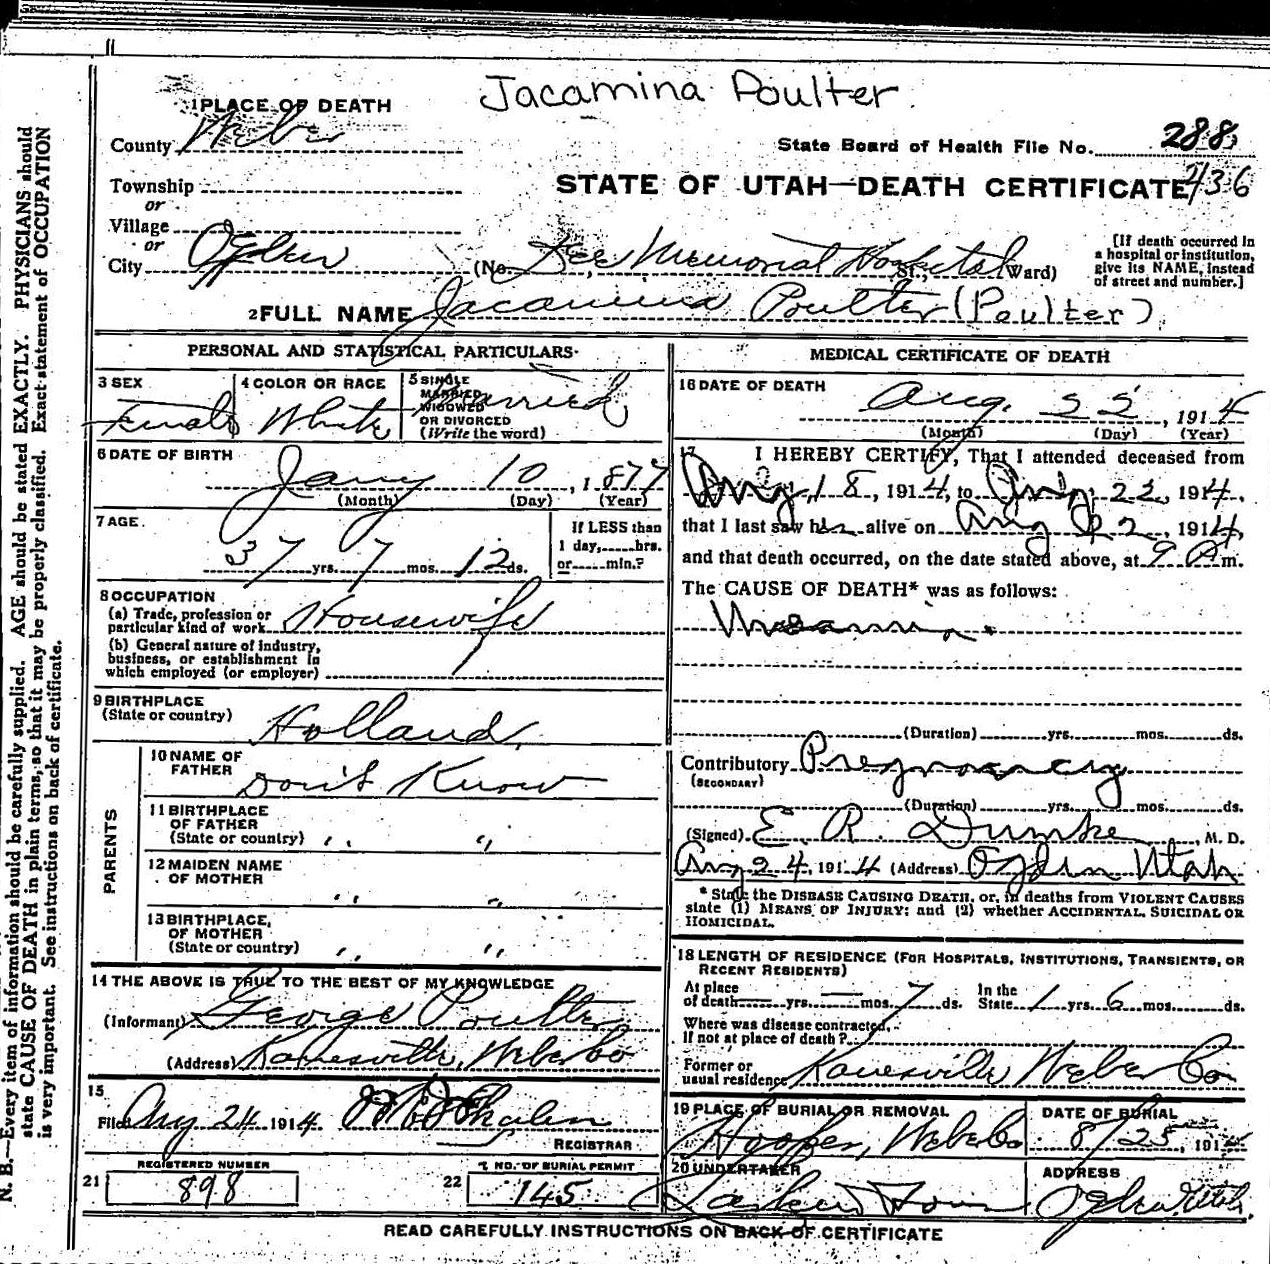 Jacamina Poulter
1 PLACE OF DEATH
County Weber
State Board of Health File No. 288
Township
STATE OF UTAH—DEATH CERTIFICATE 236
or
Village
or
City Ogden (No. Dee Memorial Hospital St., Ward)
[If death occurred in a hospital or institution, give its NAME, instead of street and number.]
2 FULL NAME Jacamina Poulter (Poulter)
PERSONAL AND STATISTICAL PARTICULARS
3 SEX
Female
4 COLOR OR RACE
White
5 SINGLE
MARRIED
WIDOWED
OR DIVORCED
(Write the word)
Married
6 DATE OF BIRTH
Jany 10, 1877
(Month) (Day) (Year)
7 AGE
37 yrs. 7 mos. 12 ds.
If LESS than
1 day,......hrs.
or......min.?
8 OCCUPATION
(a) Trade, profession or
particular kind of work Housewife
(b) General nature of industry,
business, or establishment in
which employed (or employer)
9 BIRTHPLACE
(State or country) Holland
PARENTS
10 NAME OF
FATHER Don't Know
11 BIRTHPLACE
OF FATHER
(State or country) " "
12 MAIDEN NAME
OF MOTHER " "
13 BIRTHPLACE
OF MOTHER
(State or country) " "
14 THE ABOVE IS TRUE TO THE BEST OF MY KNOWLEDGE
(Informant) George Poulter
(Address) Kanesville, Weber Co
15
Filed Aug 24 1914
REGISTRAR
REGISTERED NUMBER
21 898
NO. OF BURIAL PERMIT
22 145
MEDICAL CERTIFICATE OF DEATH
16 DATE OF DEATH
Aug. 22, 1914
(Month) (Day) (Year)
17 I HEREBY CERTIFY, That I attended deceased from
Aug 18, 1914, to Aug 22, 1914,
that I last saw her alive on Aug 22, 1914,
and that death occurred, on the date stated above, at 9 A m.
The CAUSE OF DEATH* was as follows:
(Duration) yrs. mos. ds.
Contributory Pregnancy
(SECONDARY)
(Duration) yrs. mos. ds.
(Signed) E. R. Dumke, M. D.
Aug 24, 1914 (Address) Ogden Utah
* State the DISEASE CAUSING DEATH, or, in deaths from VIOLENT CAUSES
state (1) MEANS OF INJURY; and (2) whether ACCIDENTAL, SUICIDAL OR
HOMICIDAL.
18 LENGTH OF RESIDENCE (FOR HOSPITALS, INSTITUTIONS, TRANSIENTS, OR
RECENT RESIDENTS)
At place
of death yrs. — mos. 7 ds. In the
State 1 yrs. 6 mos. ds.
Where was disease contracted,
If not at place of death?
Former or
usual residence Kanesville Weber Co
19 PLACE OF BURIAL OR REMOVAL
Hooper, Weber Co
DATE OF BURIAL
8/25, 191
20 UNDERTAKER
ADDRESS
Ogden Utah.
READ CAREFULLY INSTRUCTIONS ON BACK OF CERTIFICATE
N. B.—Every item of information should be carefully supplied. AGE should be stated EXACTLY. PHYSICIANS should
state CAUSE OF DEATH in plain terms, so that it may be properly classified. Exact statement of OCCUPATION
is very important. See instructions on back of certificate.